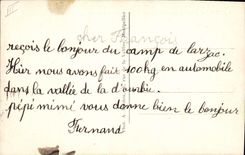 cher François
reçois le bonjour du camp de larzac.
Hier nous avons fait 100 kg en automobile
dans la vallée de la d'ourbie.
pépé mimé vous donne bien le bonjour
Fernand